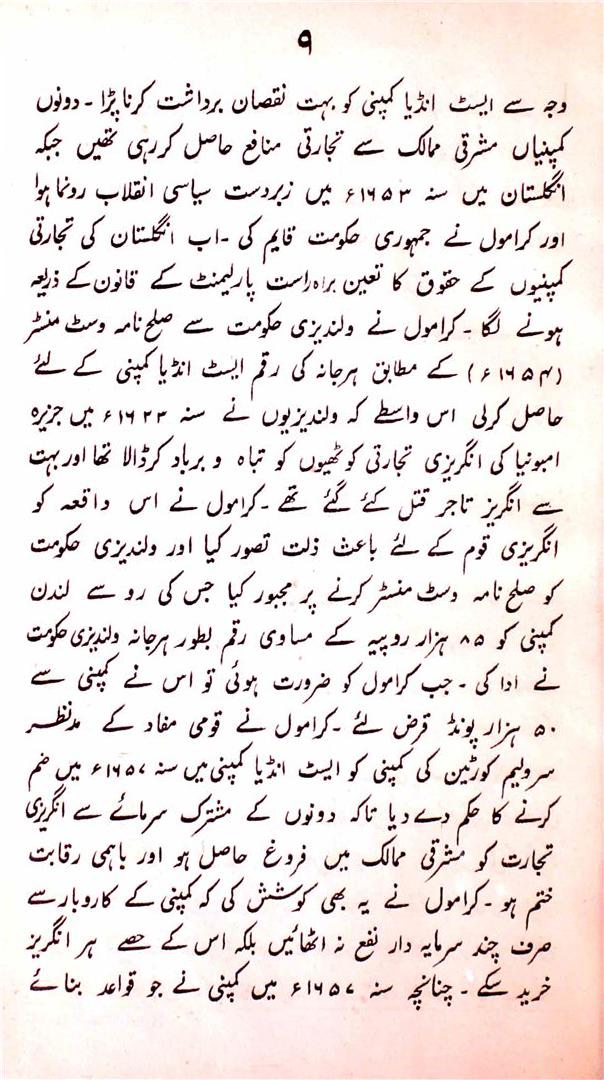 ۹
وجہ سے ایسٹ انڈیا کمپنی کو بہت نقصان برداشت کرنا پڑا ۔ دونوں
کمپنیاں مشرقی ممالک سے تجارتی منافع حاصل کر رہی تھیں جبکہ
انگلستان میں سنہ ۱۶۵۳ء میں زبردست سیاسی انقلاب رونما ہوا
اور کرامول نے جمہوری حکومت قایم کی ۔ اب انگلستان کی تجارتی
کمپنیوں کے حقوق کا تعین براہ راست پارلیمنٹ کے قانون کے ذریعہ
ہونے لگا ۔ کرامول نے ولندیزی حکومت سے صلح نامہ وسٹ منسٹر
(۱۶۵۴ء) کے مطابق ہرجانہ کی رقم ایسٹ انڈیا کمپنی کے لئے
حاصل کرلی اس واسطے کہ ولندیزیوں نے سنہ ۱۶۲۳ء میں جزیرہ
امبونیا کی انگریزی تجارتی کوٹھیوں کو تباہ و برباد کرڈالا تھا اور بہت
سے انگریز تاجر قتل کئے گئے تھے ۔ کرامول نے اس واقعہ کو
انگریزی قوم کے لئے باعث ذلت تصور کیا اور ولندیزی حکومت
کو صلح نامہ وسٹ منسٹر کرنے پر مجبور کیا جس کی رو سے لندن
کمپنی کو ۸۵ ہزار روپیہ کے مساوی رقم بطور ہرجانہ ولندیزی حکومت
نے ادا کی ۔ جب کرامول کو ضرورت ہوئی تو اس نے کمپنی سے
۵۰ ہزار پونڈ قرض لئے ۔ کرامول نے قومی مفاد کے مدنظر
سرولیم کورٹین کی کمپنی کو ایسٹ انڈیا کمپنی میں سنہ ۱۶۵۷ء میں ضم
کرنے کا حکم دے دیا تاکہ دونوں کے مشترک سرمائے سے انگریزی
تجارت کو مشرقی ممالک میں فروغ حاصل ہو اور باہمی رقابت
ختم ہو ۔ کرامول نے یہ بھی کوشش کی کہ کمپنی کے کاروبار سے
صرف چند سرمایہ دار نفع نہ اٹھائیں بلکہ اس کے حصے ہر انگریز
خرید سکے ۔ چنانچہ سنہ ۱۶۵۷ء میں کمپنی نے جو قواعد بنائے